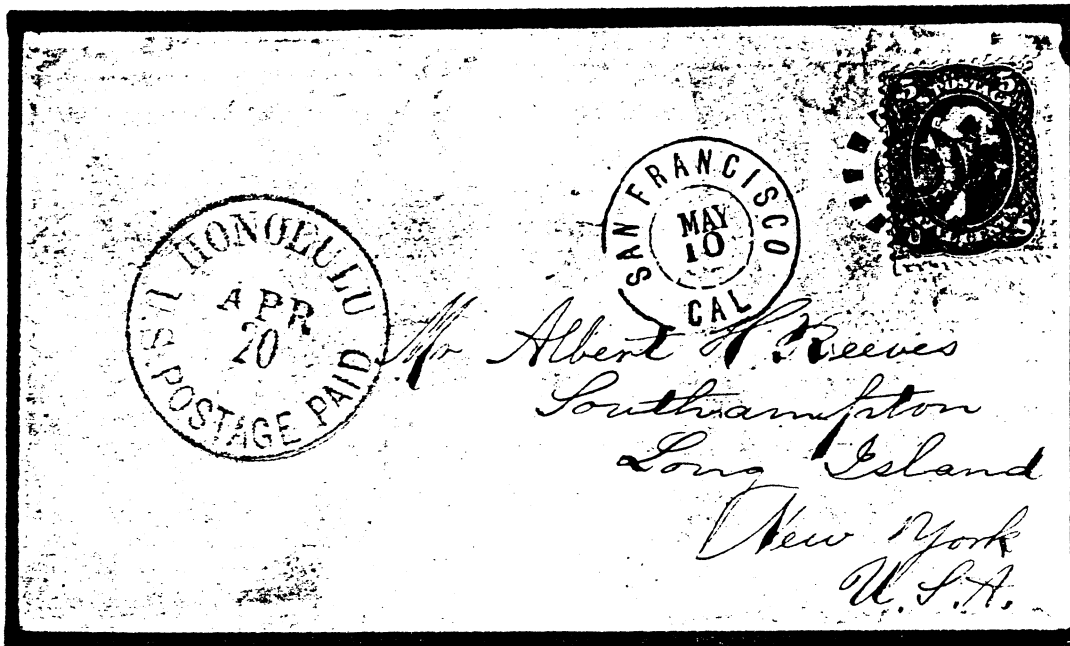 HONOLULU
APR
20
U.S. POSTAGE PAID
SAN FRANCISCO
MAY
10
CAL
5 POSTAGE 5
Mr Albert H Reeves
Southampton
Long Island
New York
U.S.A.